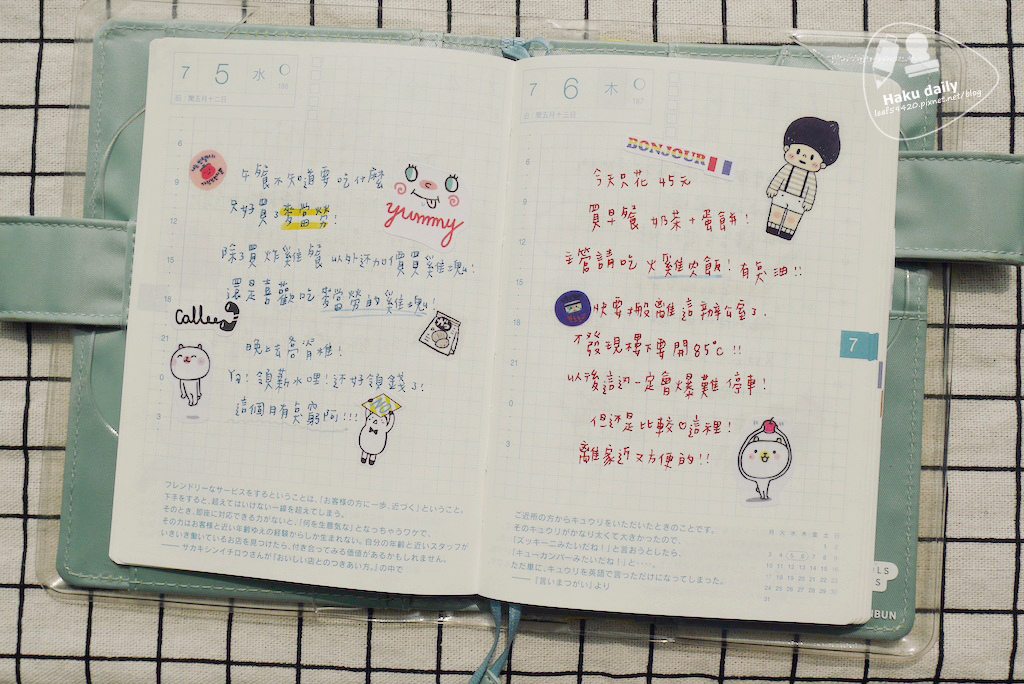 7 5 水
186
旧:閏五月十二日
6
9
12
15
18
21
0
3
yummy
Calling
午餐不知道要吃什麼
只好買了麥當勞!
除了買炸雞餐以外还加價買雞塊!
還是喜歡吃麥當勞的雞塊!
晚上去脊椎!
Ya! 領薪水哩!还好領錢了!
這個月有点窮阿!!!
フレンドリーなサービスをするということは、「お客様の方に一歩、近づく」ということ。
下手をすると、超えてはいけない一線を超えてしまう。
そのとき、即座に対応できる力がないと、「何を生意気な」となっちゃうワケで、
その力はお客様と近い年齢ゆえの経験からしか生まれない。自分の年齢と近いスタッフが
いきいき働いているお店を見つけたら、付き合ってみる価値があるかもしれません。
——サカキシンイチロウさんが『おいしい店とのつきあい方。』の中で
7 6 木
187
旧:閏五月十三日
6
9
12
15
18
21
0
3
BONJOUR
今天只花45元
買早餐 奶茶+蛋餅!
主管請吃火雞肉飯!有点油!!
快要搬離這辦公室了.
才發現樓下要開85°c!!
以後這边一定會爆難停車!
但还是比較♡這裡!
離家近又方便的!!
7
ご近所の方からキュウリをいただいたときのことです。
そのキュウリがかなり太くて大きかったので、
「ズッキーニみたいだね!」と言おうとしたら、
「キューカンバーみたいだね!」と……。
ただ単に、キュウリを英語で言っただけになってしまった。
——『言いまつがい』より
月 火 水 木 金 土 日
1 2
3 4 5 6 7 8 9
10 11 12 13 14 15 16
17 18 19 20 21 22 23
24 25 26 27 28 29 30
31
Haku daily
leaf59420.pixnet.net/blog